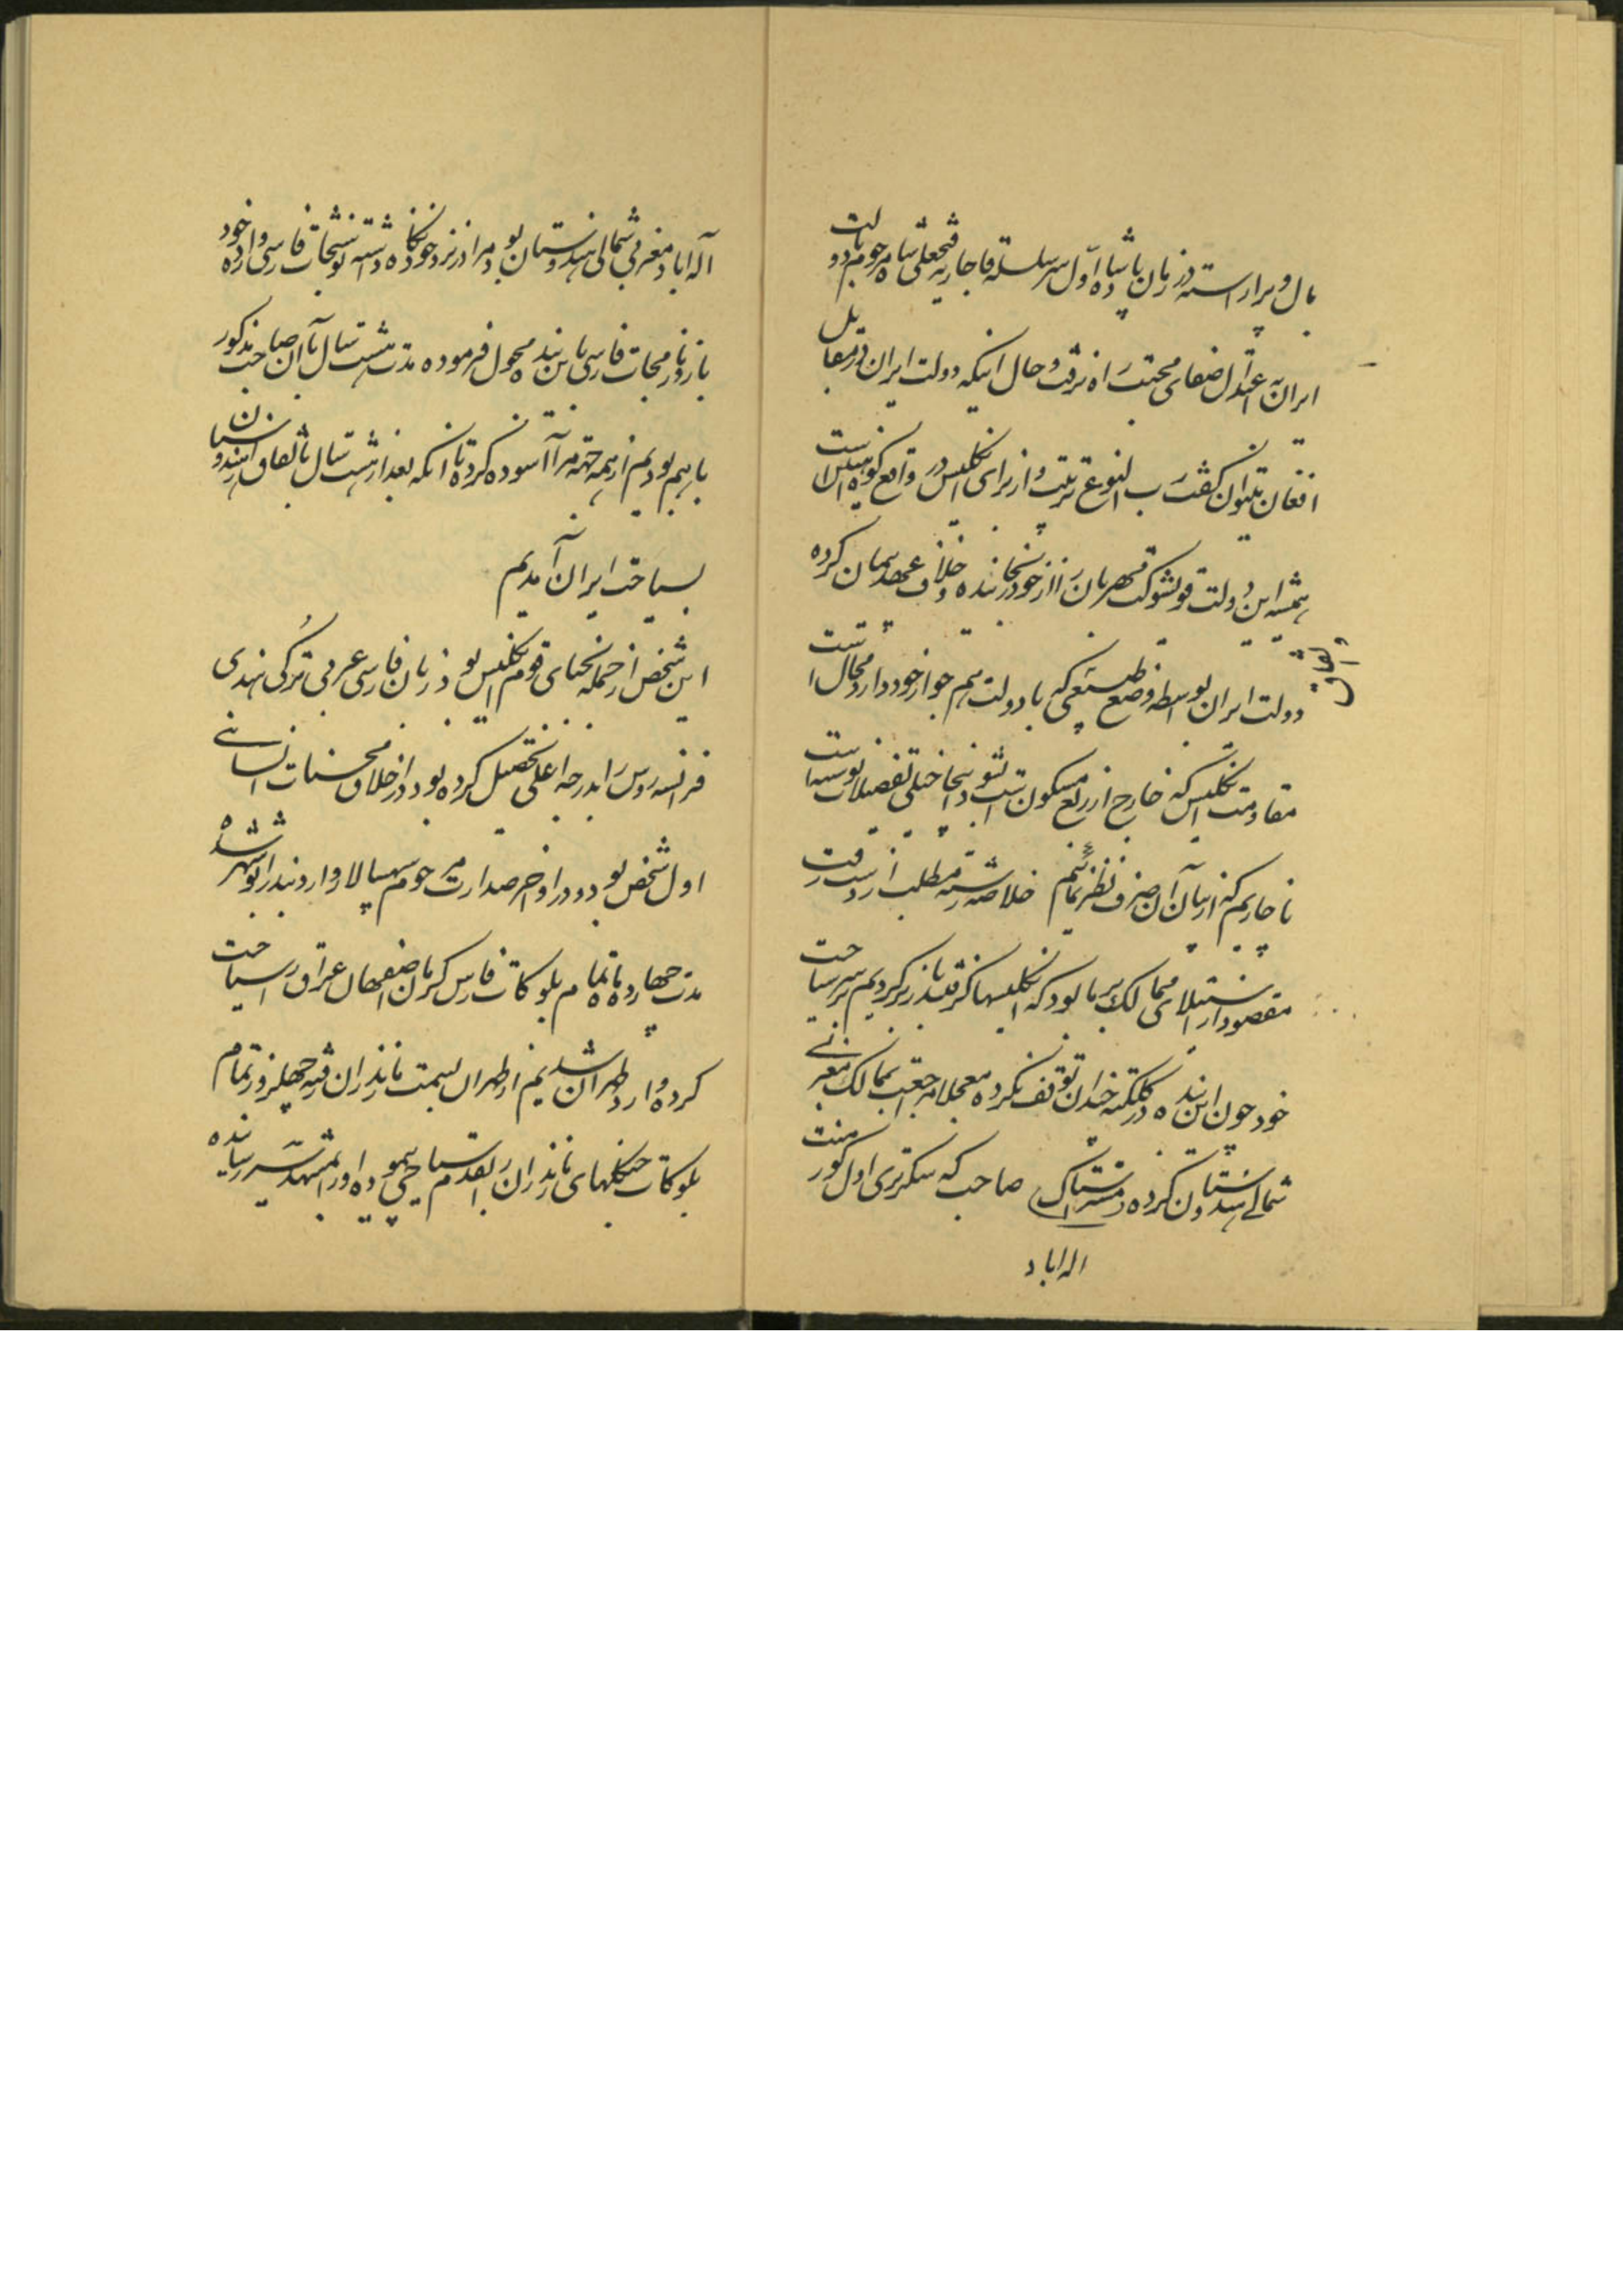 بال و پر آراسته در زمان پادشاه اول سرسلسله قاجاریه فتحعلی شاه مرحوم با دولت
ایران به اعتدال صفای محبت راه نرفت و حال اینکه دولت ایران در مقابل
افغان نتوان گفت سب النوع تربیت و از برای انگلیس در واقع کوه است
همیشه این دولت قویشوکت قهرمان را از خود رنجانده و خلاف عهد پیمان کرده
دولت ایران بواسطه وضع طبیعی که با دولت هم جوار خود دارد محال است
مقاومت انگلیس که خارج از ربع مسکون است بشود اینجا خیلی تفصیلات است
ناچاریم که از بیان آن صرف نظر نمائیم خلاصه رشته مطلب از دست رفت
مقصود از استیلای ممالک برما بود که انگلیسها گرفتند باز برگردیم بر سر سیاحت
خود چون این بنده در کلکته چندان توقف نکرده معجلا مراجعت بممالک مغربی
شمالی هندوستان کرده مستر استاک صاحب که سکرتری اول گورمنت
اله اباد
اله اباد مغربی شمالی هندوستان بود مرا در نزد خود نگاه داشته نوشتجات فارسی و اداره خود
باز در ترجمجات فارسی باین بنده محول فرموده مدت هشت سال با آن صاحب مذکور
با هم بودیم از همه جهة مرا آسوده کرد تا آنکه بعد از هشت سال باتفاق از هندوستان
بسیاحت ایران آمدیم
این شخص از جمله نجبای قوم انگلیس بود زبان فارسی عربی ترکی هندی
فرانسه روس را بدرجه اعلی تحصیل کرده بود و در اخلاق محسنات انسانی
اول شخص بود در اواخر صدارت مرحوم سپهسالار وارد بندر ابوشهر شده
مدت چهارده ماه تمام بلوکات فارس کرمان اصفهان عراق را سیاحت
کرده وارد طهران شدیم از طهران بسمت مازندران رفته چهل روز تمام
بلوکات جنگلهای مازندران را بقدم سیاحی پیموده او را بمشهدسر رسانده